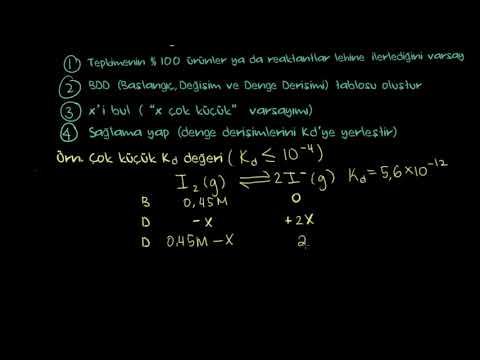 ① Tepkimenin % 100 ürünler ya da reaktantlar lehine ilerlediğini varsay
② BDD (Başlangıç, Değişim ve Denge Derişimi) tablosu oluştur
③ x'i bul ( "x çok küçük" varsayımı)
④ Sağlama yap (denge derişimlerini Kd'ye yerleştir)
Örn. Çok küçük Kd değeri ( Kd ≤ 10⁻⁴)
I₂ (g) ⇌ 2I⁻ (g) Kd = 5,6 x 10⁻¹²
B 0,45M 0
D -x +2x
D 0,45M - x 2